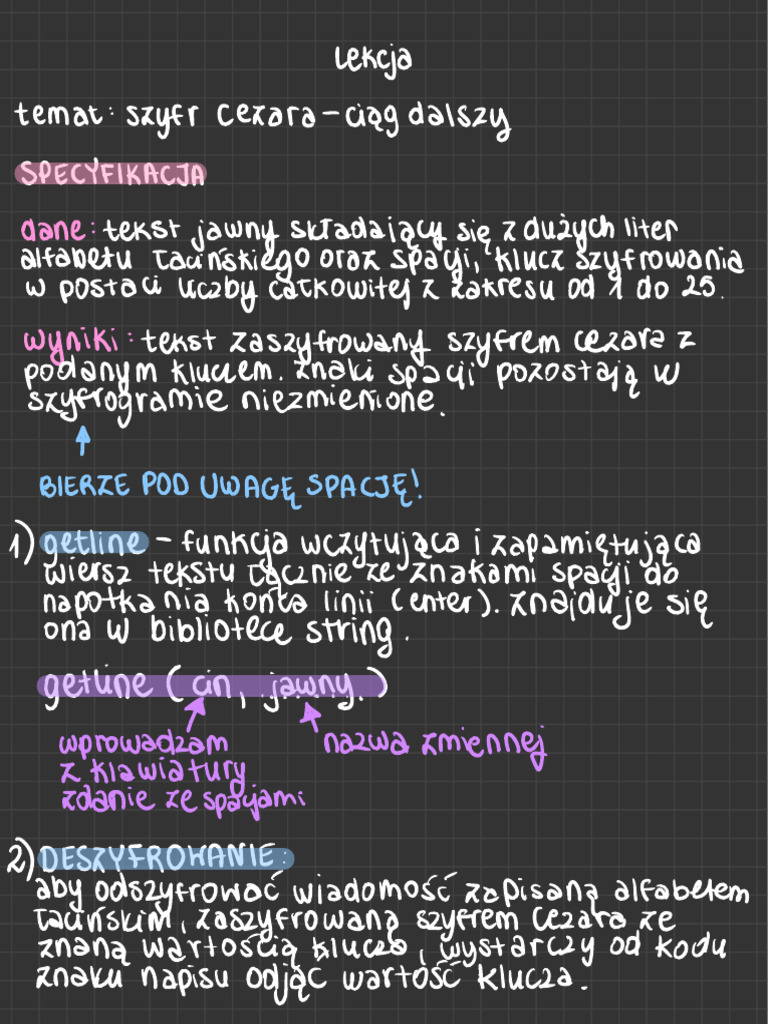 Lekcja
temat: szyfr Cezara – ciąg dalszy
SPECYFIKACJA
dane: tekst jawny składający się z dużych liter
alfabetu łacińskiego oraz spacji, klucz szyfrowania
w postaci liczby całkowitej z zakresu od 1 do 25.
wyniki: tekst zaszyfrowany szyfrem cezara z
podanym kluczem. znaki spacji pozostają w
szyfrogramie niezmienione.
BIERZE POD UWAGĘ SPACJĘ!
1) getline – funkcja wczytująca i zapamiętująca
wiersz tekstu łącznie ze znakami spacji do
napotkania końca linii (enter). znajduje się
ona w bibliotece string.
getline (cin, jawny)
wprowadzam
z klawiatury
zdanie ze spacjami
nazwa zmiennej
2) DESZYFROWANIE:
aby odszyfrować wiadomość zapisaną alfabetem
łacińskim, zaszyfrowaną szyfrem cezara ze
znaną wartością klucza, wystarczy od kodu
znaku napisu odjąć wartość klucza.